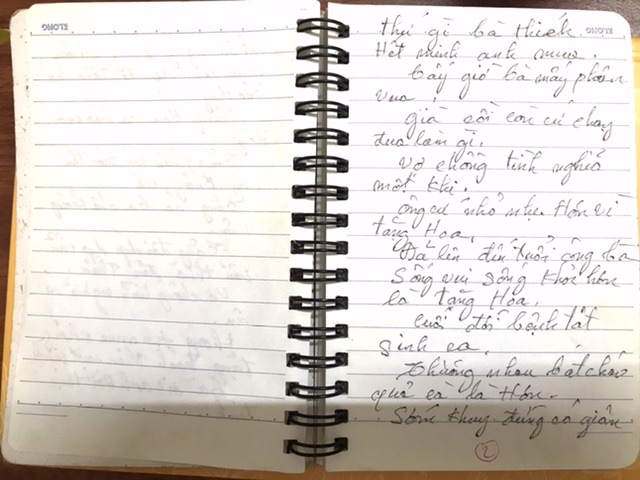 ELONG
ELONG
thứ gì bà thích
Hết mình anh mua.
bây giờ bà mấy phân
vua.
già rồi còn cứ chạy
đua làm gì.
vợ chồng tình nghĩa
một khi.
ông cứ nhỏ nhẹ. Hơn vì
tặng Hoa,
Đã lên đến tuổi ông bà
Sống vui sống khỏe hơn
là tặng Hoa.
cuối đời bệnh tất
sinh ra.
thương nhau bát cháo
quả cà là Hơn.
đừng có giận
2